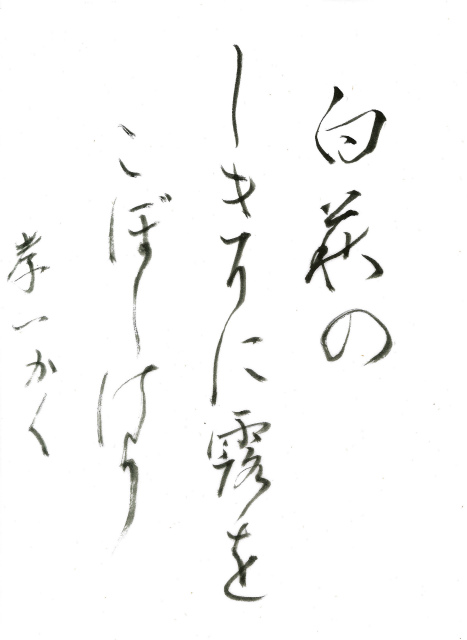 白萩の
しきりに露を
こぼしけり
孝一かく